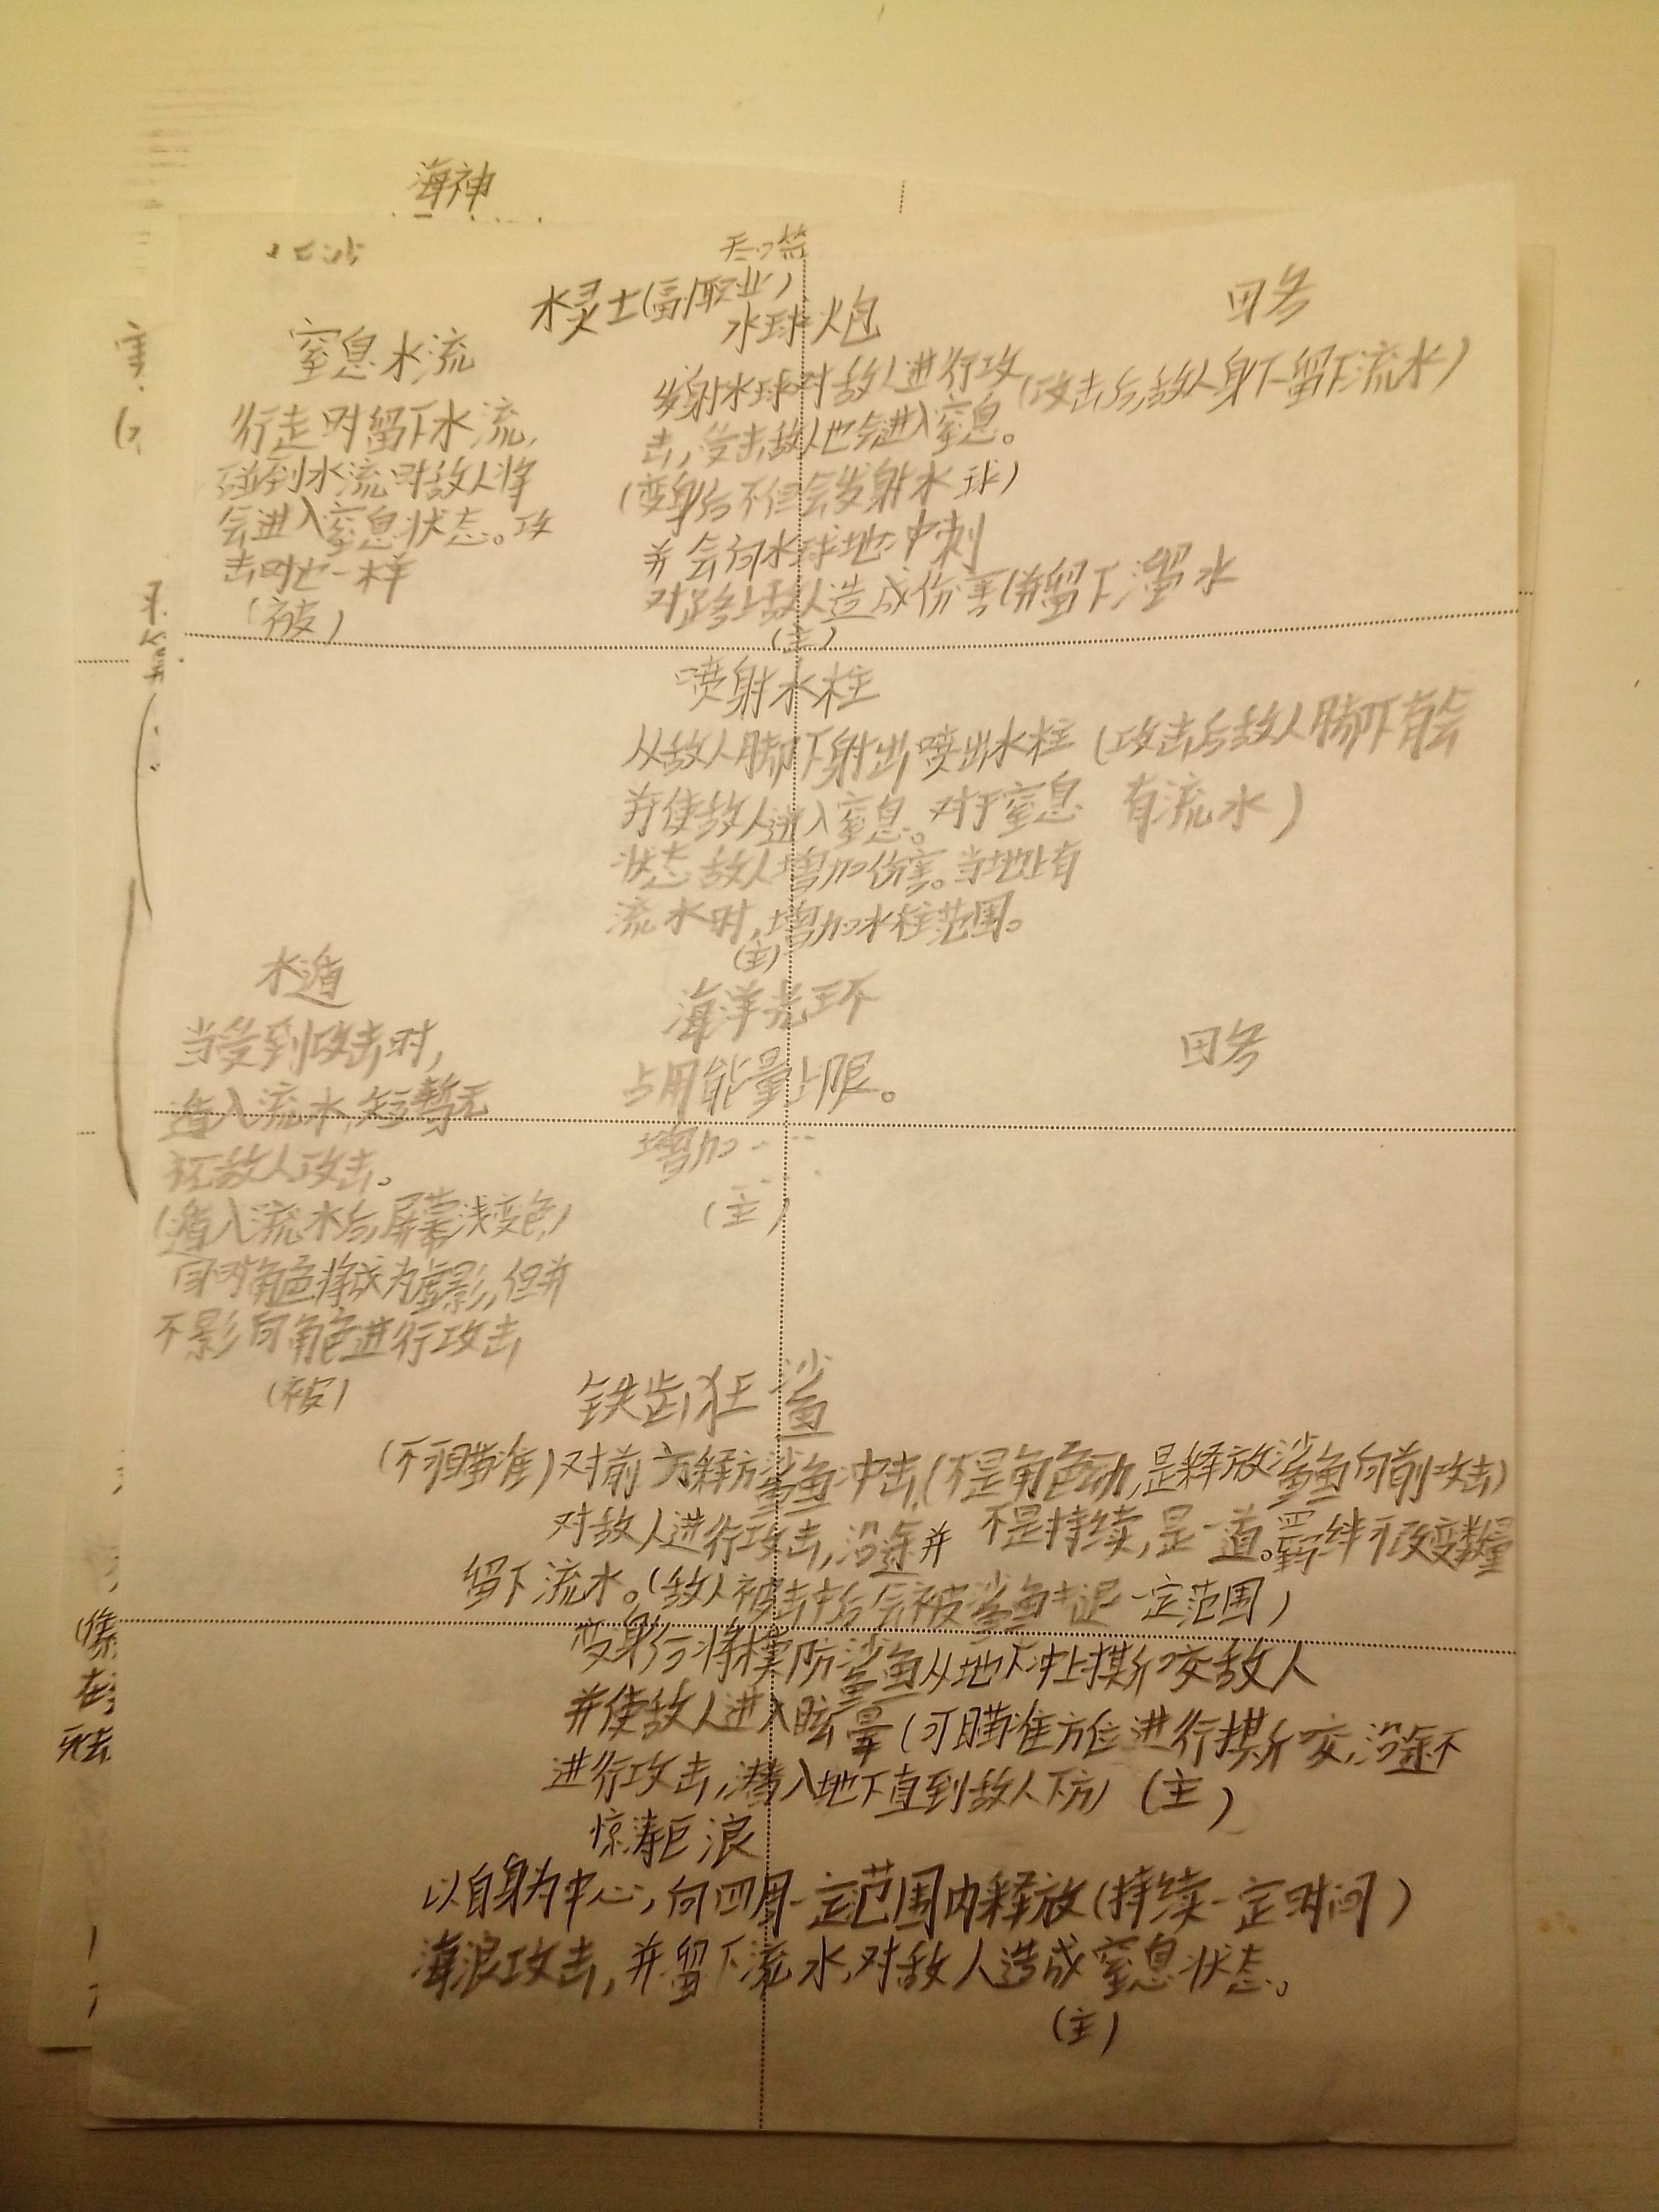 海神
水灵士(副职业)
窒息水流
行走时留下水流,
碰到水流时敌人将
会进入窒息状态。攻
击时也一样
(被)
水球炮
发射水球对敌人进行攻
击,受击敌人也会进入窒息。
(变身后不但会发射水球)
并会向水球地冲刺
对路上敌人造成伤害(并留下溜水
(主)
(攻击后,敌人身下留下流水)
喷射水柱
从敌人脚下射出喷出水柱
并使敌人进入窒息。对于窒息
状态敌人增加伤害。当地上有
流水时,增加水柱范围。
(主)
(攻击后敌人脚下有会
有流水)
水遁
当受到攻击时,
遁入流水,短暂无
视敌人攻击。
(遁入流水后,屏幕浅变色)
同时角色将成为虚影,但并
不影向角色进行攻击
(被)
海洋光环
占用能量上限。
增加……
(主)
铁齿狂鲨
(不可瞄准)对前方释放鲨鱼冲击,(不是角色动,是释放鲨鱼向前攻击)
对敌人进行攻击,沿途并 不是持续,是一道。羁绊可改变数量
留下流水。(敌人被击中后会被鲨鱼击退一定范围)
变身后将模防鲨鱼从地下冲上撕咬敌人
并使敌人进入眩晕(可瞄准方位进行撕咬,沿途不
进行攻击,潜入地下直到敌人下方)(主)
惊涛巨浪
以自身为中心,向四周一定范围内释放(持续一定时间)
海浪攻击,并留下流水,对敌人造成窒息状态。
(主)